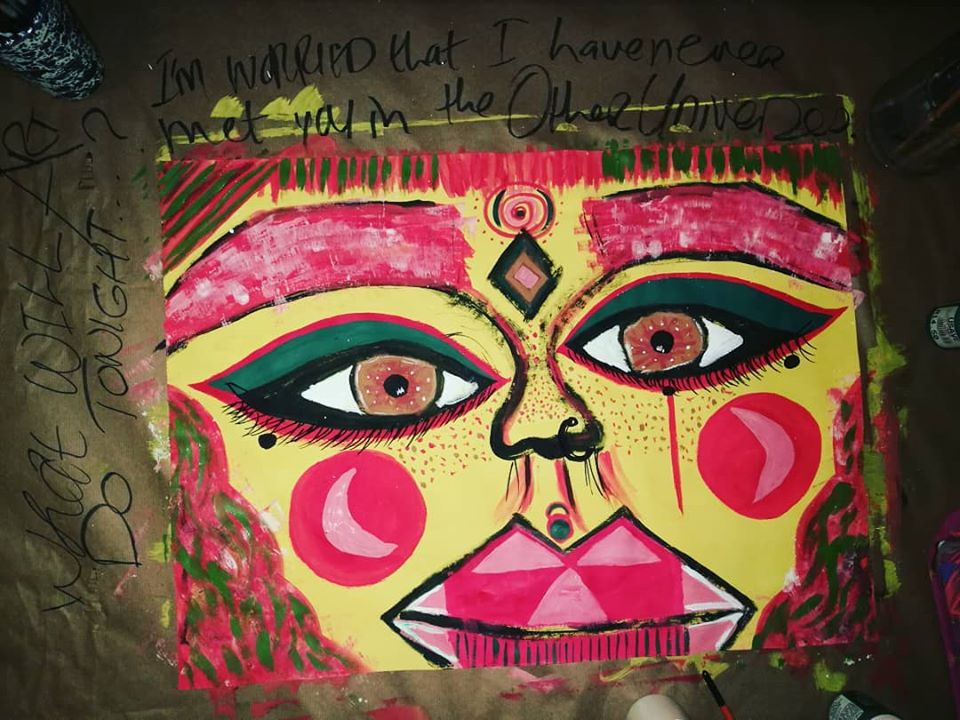 I'm WORRIED that I have never
met you in the Other Universes.
What WILL ART
DO TONIGHT...?